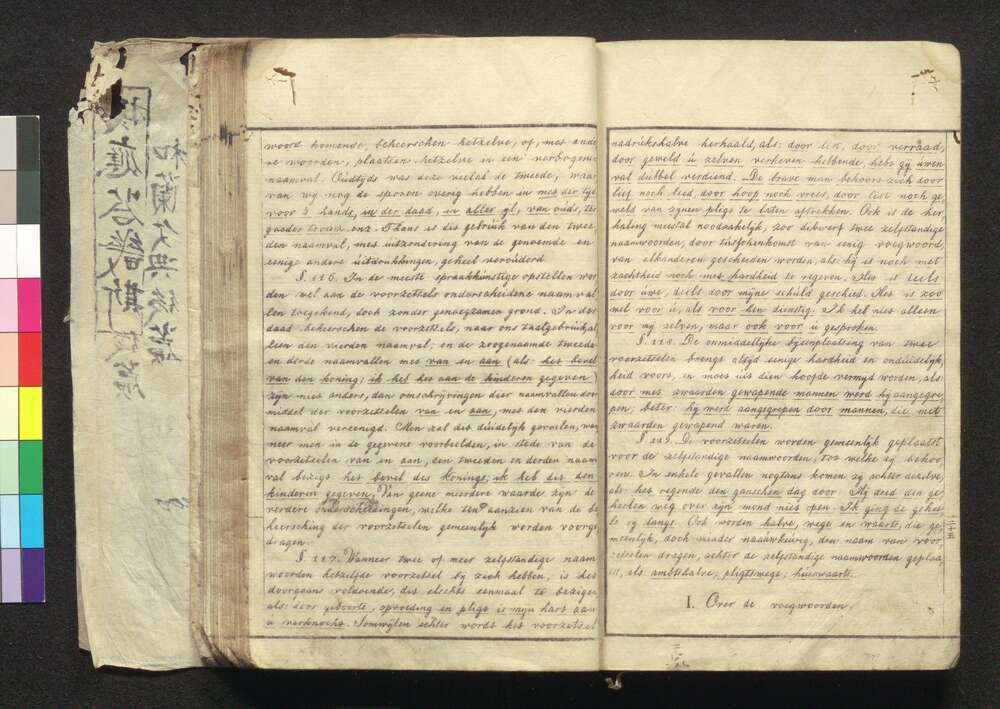 woord komende, beheerschen hetzelve, of, met ande
re woorden, plaatsen hetzelve in een verbogene
naamval. Oudtijds was deze veelal de tweede, waar
van wij nog de sporen overig hebben in met der tijd
voor 's hands, in der daad, in aller ijl, van ouds, ter
goeder trouw enz. Thans is dit gebruik van den twee
den naamval, met uitzondering van de genoemde en
eenige andere uitdrukkingen, geheel verouderd
§. 116. In de meeste spraakkunstige opstellen wor
den wel aan de voorzetsels onderscheidene naamval
len toegekend, doch zonder genoegzamen grond. In der
daad beheerschen de voorzetsels, naar ons taalgebruik al
leen den vierden naamval, en de zoogenaamde tweede
en derde naamvallen met van en aan (als het bevel
van den koning; ik heb het aan de kinderen gegeven)
zijn niet anders, dan omschrijvingen dier naamvallen door
middel der voorzetselen van en aan, met den vierden
naamval vereenigd. Men zal dit duidelijk gevoelen, wan
neer men in de gegevene voorbeelden, in stede van de
voorzetselen van en aan, den tweeden en derden naam
val bezigt het bevel des konings; ik heb dit den
kinderen gegeven. Van geene meerdere waarde zijn de
verdere onderscheidingen, welke ten aanzien van de be
heersching der voorzetselen gemeenlijk worden voorge
dragen.
§. 117. Wanneer twee of meer zelfstandige naam
woorden hetzelfde voorzetsel bij zich hebben, is het
doorgaans voldoende, dit slechts eenmaal te bezigen
als: door geboorte, opvoeding en pligt is mijn hart aan
u verknocht. Somwijlen echter wordt het voorzetsel
nadrukshalve herhaald, als: door list, door verraad,
door geweld u zelven verheven hebbende, hebt gij uwen
val dubbel verdiend. De brave man behoort zich door
lief noch leed, door hoop noch vrees, door list noch ge
weld van zijnen pligt te laten aftrekken. Ook is de her
haling meestal noodzakelijk, zoo dikwerf twee zelfstandige
naamwoorden, door tusschenkomst van eenig voegwoord,
van elkanderen gescheiden worden, als: hij is noch met
zachtheid noch met hardheid te regeren. Het is deels
door uwe, deels door mijne schuld geschied. Het is zoo
wel voor u, als voor hen dienstig. Ik heb niet alleen
voor mij zelven, maar ook voor u gesproken.
§. 118. De onmiddelijke bijeenplaatsing van twee
voorzetselen brengt altijd eenige hardheid en onduidelijk
heid voort, en moet uit dien hoofde vermijd worden, als:
door met zwaarden gewapende mannen werd hij aangegre
pen; beter: hij werd aangegrepen door mannen, die met
zwaarden gewapend waren.
§. 119. De voorzetselen worden gemeenlijk geplaatst
voor de zelfstandige naamwoorden, tot welke zij behoo
ren. In enkele gevallen nogtans komen zij achter dezelve,
als: het regende den ganschen dag door. Hij deed den ge
heelen weg over zijn mond niet open. Ik ging de gehee
le zij langs. Ook worden halve, wege en waarts, die ge
meenlijk, doch minder naauwkeurig, den naam van voor
zetselen dragen, achter de zelfstandige naamwoorden geplaa
tst, als: ambtshalve, pligtswege, huiswaarts.
I. Over de voegwoorden.